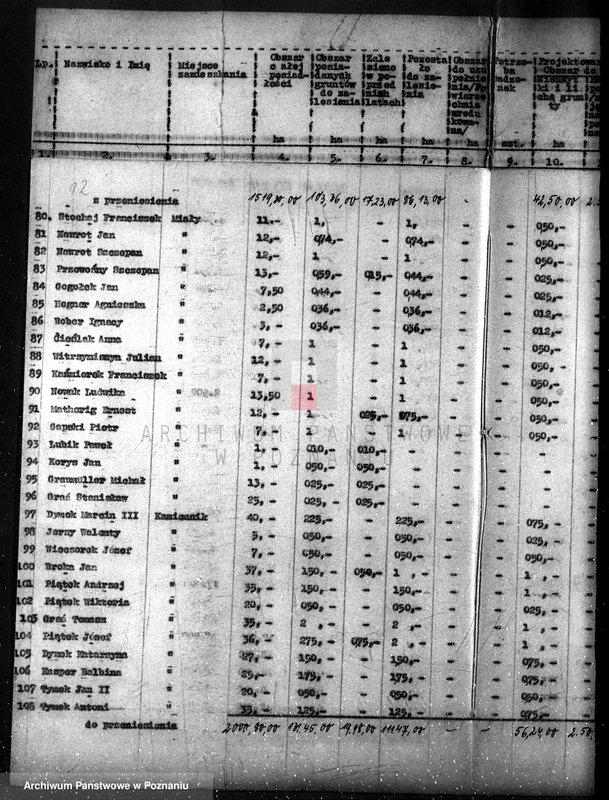 Lp. Nazwisko i Imię Miejsce zamieszkania Obszar całej posiadłości Obszar posiadanych gruntów do zalesienia Zalesiono w poprzednich latach Pozostało do zalesienia Obszar do uzupełnienia Potrzeba Projektowa
ha ha ha ha ha szt. ha
1. 2. 3. 4. 5. 6. 7. 8. 9. 10.
12
z przeniesienia 1519,20,00 103,36,00 17,23,00 86,13,00 42,50,00
80. Stochaj Franciszek Miały 11.- 1, - 1, - - 050,-
81 Nawrot Jan " 12,- 074,- - 074,- - - 050,-
82 Nawrot Szczepan " 12,- 1 - 1 - - 050,-
83 Przewoźny Szczepan " 13,- 059,- 015,- 044,- - - 025,-
84 Gogołek Jan " 7,50 044,- - 044,- - - 025,-
85 Hegner Agnieszka " 2,50 036,- - 036,- - - 012,-
86 Bober Ignacy " 3,- 036,- - 036,- - - 012,-
87 Cieślak Anna " 7,- 1 - 1 - - 050,-
88 Witrzyniszyn Julian " 12,- 1 - 1 - - 050,-
89 Kaźmierek Franciszek " 7,- 1 - 1 - - 050,-
90 Nowak Ludwika " 13,50 1 - 1 - - 050,-
91 Matherig Ernest " 12,- 1 025,- 075,- - - 050,-
92 Gapski Piotr " 7,- 1 - 1 - - 050,-
93 Lubik Paweł " 1,- 010,- 010,- - - - -
94 Korys Jan " 1,- 050,- 050,- - - - -
95 Graumuller Michał " 13,- 025,- 025,- - - - -
96 Graś Stanisław " 25,- 025,- 025,- - - - -
97 Dymek Marcin III Kamiennik 40,- 225,- - 225,- - - 075,-
98 Jerzy Walenty " 5,- 050,- - 050,- - - 025,-
99 Wieczorek Józef " 7,- 050,- - 050,- - - 050,-
100 Broka Jan " 37,- 150,- 050,- 1,- - - 1,-
101 Piątek Andrzej " 35,- 150,- - 150,- - - 1,-
102 Piątek Wiktoria " 20,- 050,- - 050,- - - 025,-
103 Graś Tomasz " 35,- 2,- - 2,- - - 1,-
104 Piątek Józef " 36,- 275,- 075,- 2,- - - 1,-
105 Dymek Katarzyna " 27,- 150,- - 150,- - - 075,-
106 Kasper Balbina " 25,- 175,- - 175,- - - 075,-
107 Tymek Jan II " 20,- 050,- - 050,- - - 050,-
108 Tymek Antoni " 35,- 125,- - 125,- - - 075,-
do przeniesienia 19,98,00 111,47,00 - - 56,24,00 2.50
ARCHIWUM PAŃSTWOWE
W POZNANIU
Archiwum Państwowe w Poznaniu